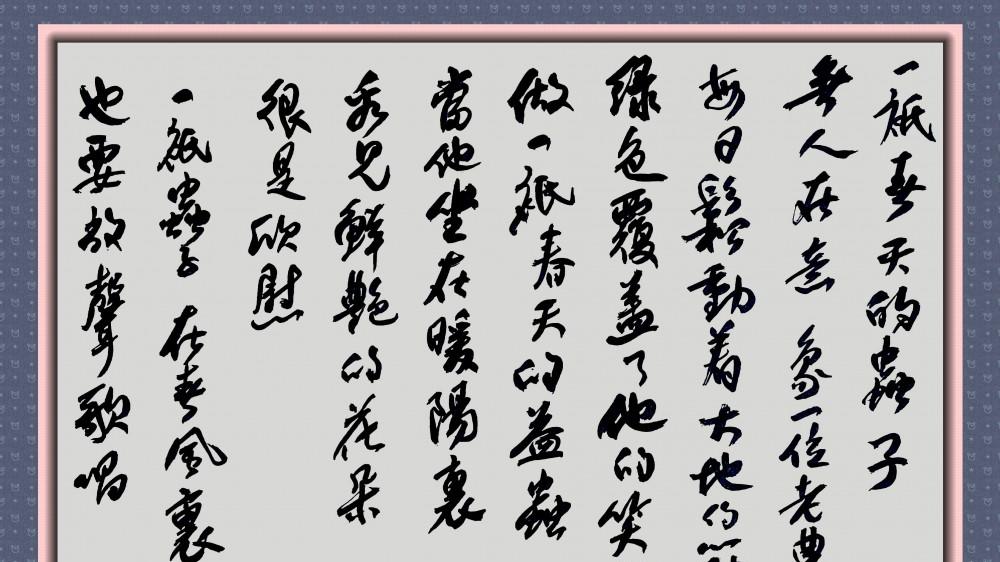 一祇春天的蟲子
無人在意 象一位老農
每日鬆動着大地的
綠色覆蓋了他的笑
做一祇春天的益蟲
當他坐在暖陽裏
看見鮮艷的花朵
很是欣慰
一祇蟲子在春風裏
也要放聲歌唱